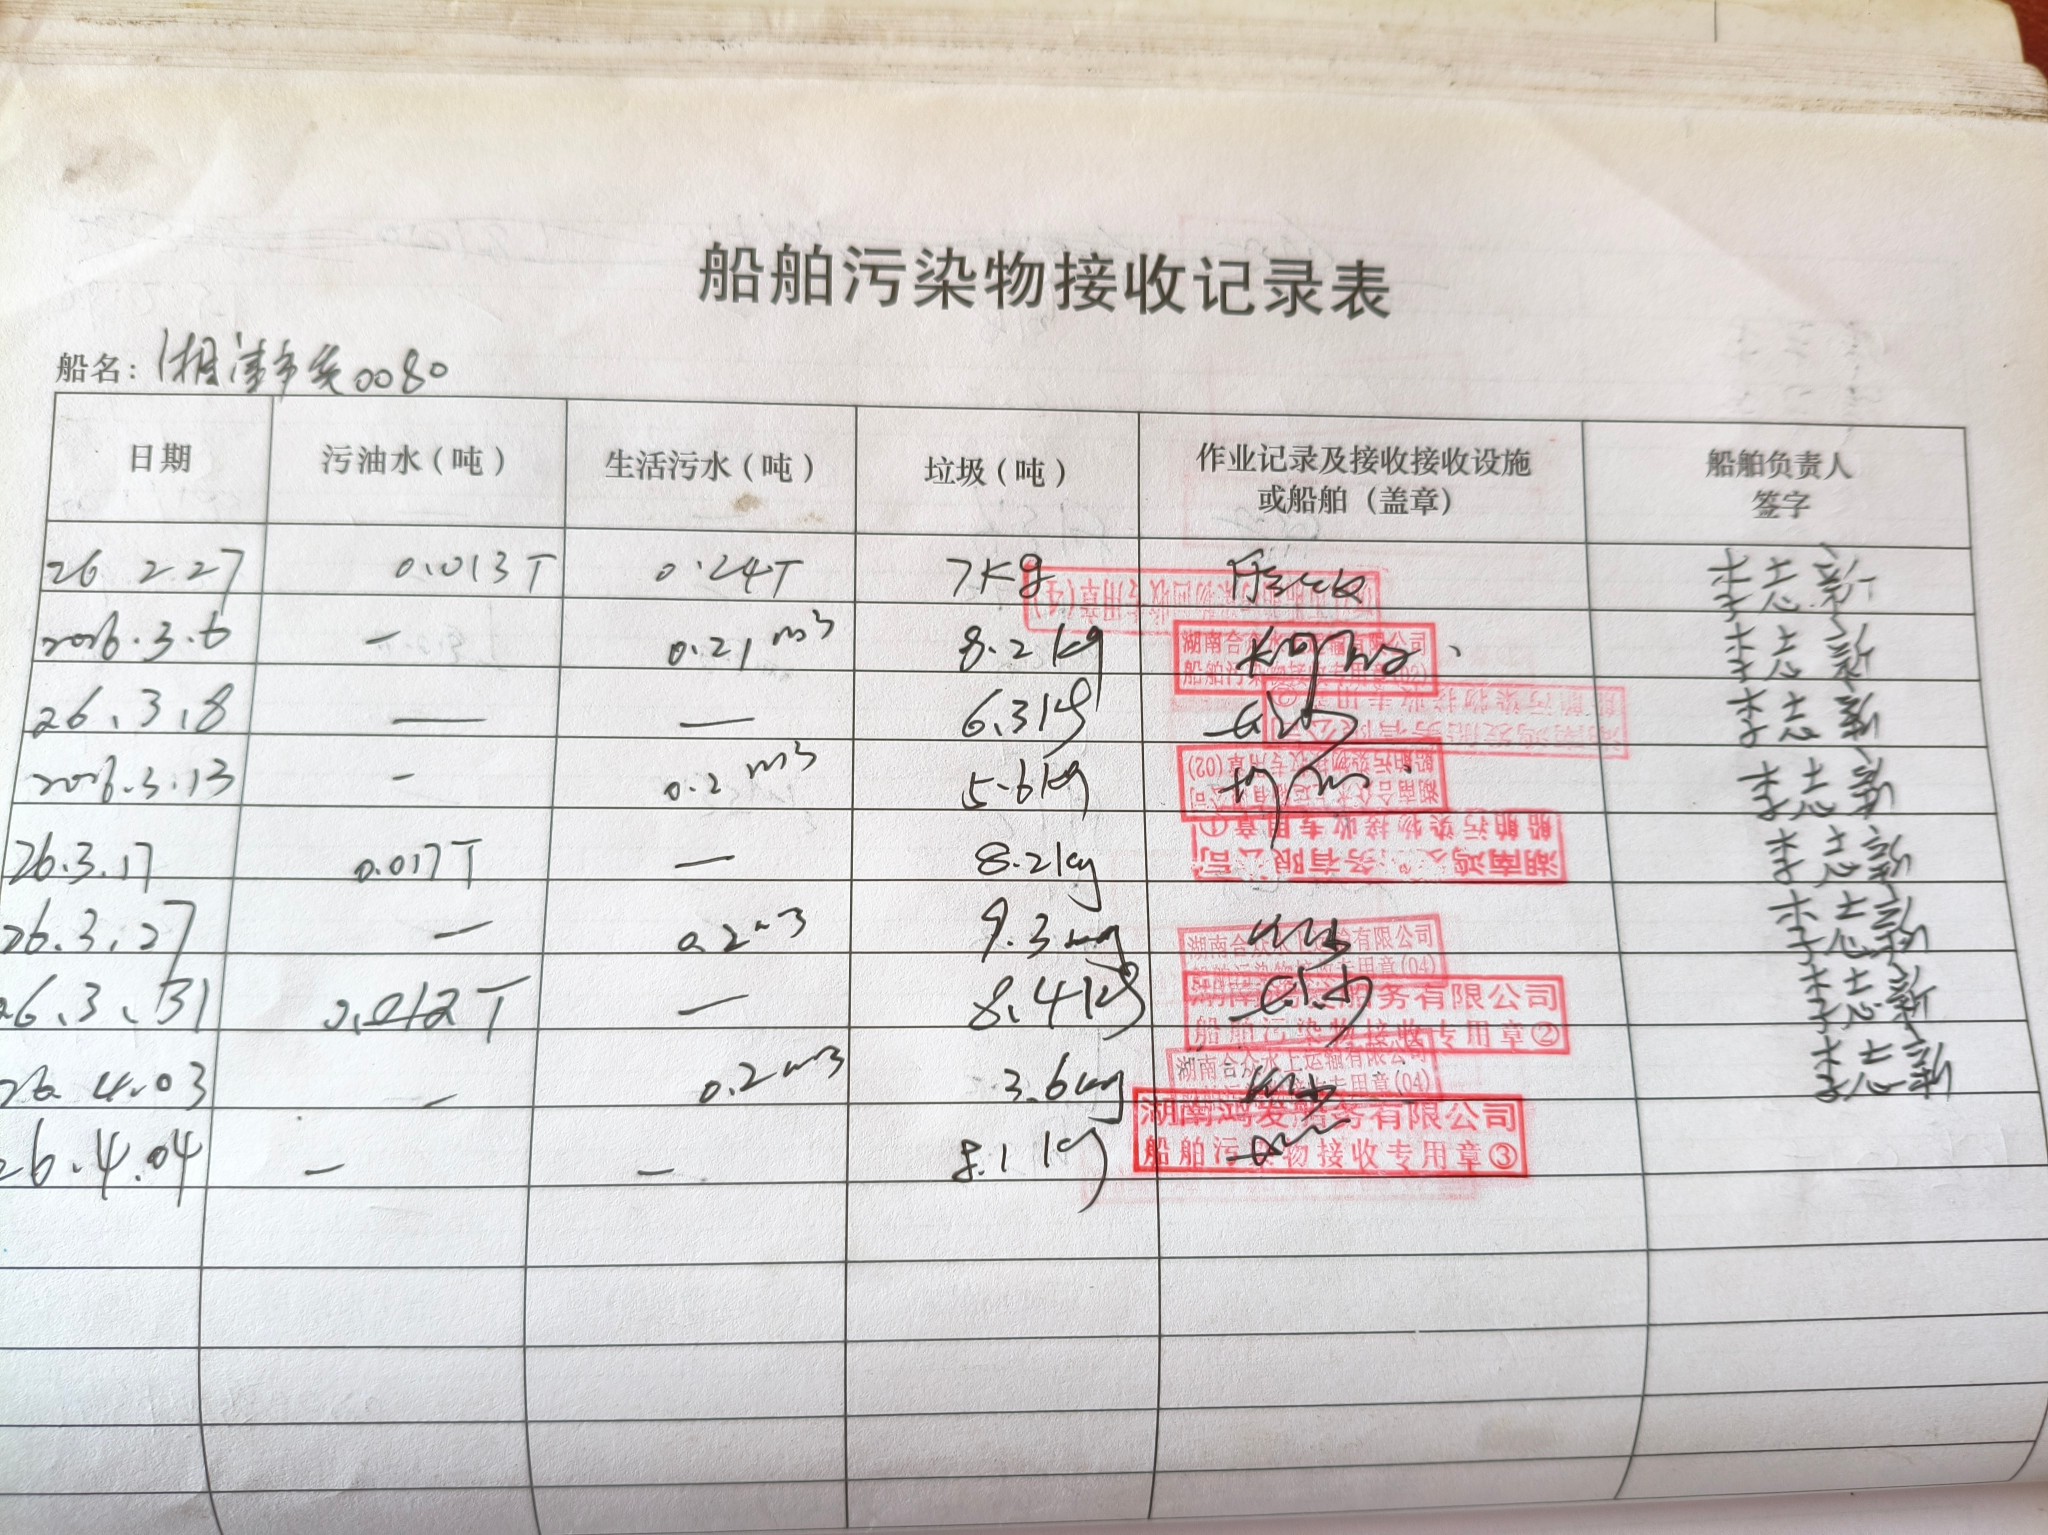 船舶污染物接收记录表
船名：湘津市货0080
日期 污油水（吨） 生活污水（吨） 垃圾（吨） 作业记录及接收接收设施或船舶（盖章） 船舶负责人签字
26 2.27 0.013T 0.24T 7Kg 李志新
2026.3.6 - 0.21m3 8.2kg 湖南合众水上运输有限公司 船舶污染物接收专用章(02) 李志新
26.3.8 — — 6.3kg 湖南鸿发船务有限公司 船舶污染物接收专用章② 李志新
2026.3.13 - 0.2m3 5.6kg 湖南合众水上运输有限公司 船舶污染物接收专用章(02) 李志新
26.3.17 0.017T — 8.2kg 湖南鸿发船务有限公司 船舶污染物接收专用章① 李志新
26.3.27 — 0.2m3 9.3kg 湖南合众水上运输有限公司 船舶污染物接收专用章(04) 李志新
26.3.31 0.012T — 8.4kg 湖南鸿发船务有限公司 船舶污染物接收专用章② 李志新
26.4.03 - 0.2m3 3.6kg 湖南合众水上运输有限公司 船舶污染物接收专用章(04) 李志新
26.4.04 — — 8.1kg 湖南鸿发船务有限公司 船舶污染物接收专用章③